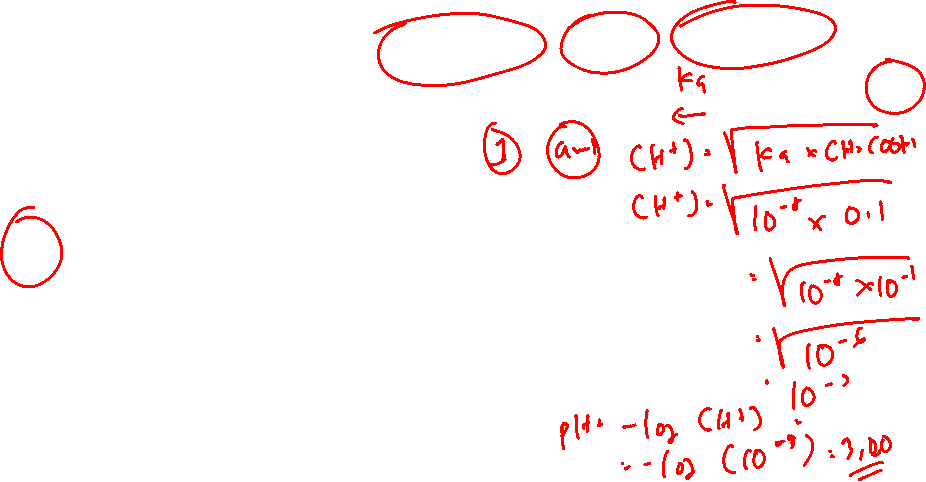 Ka
←
① awal (H⁺) = √Ka × CH₃COOH
(H⁺) = √10⁻⁵ × 0.1
= √10⁻⁵ × 10⁻¹
= √10⁻⁶
= 10⁻³
pH = -log (H⁺)
= -log (10⁻³) = 3,00